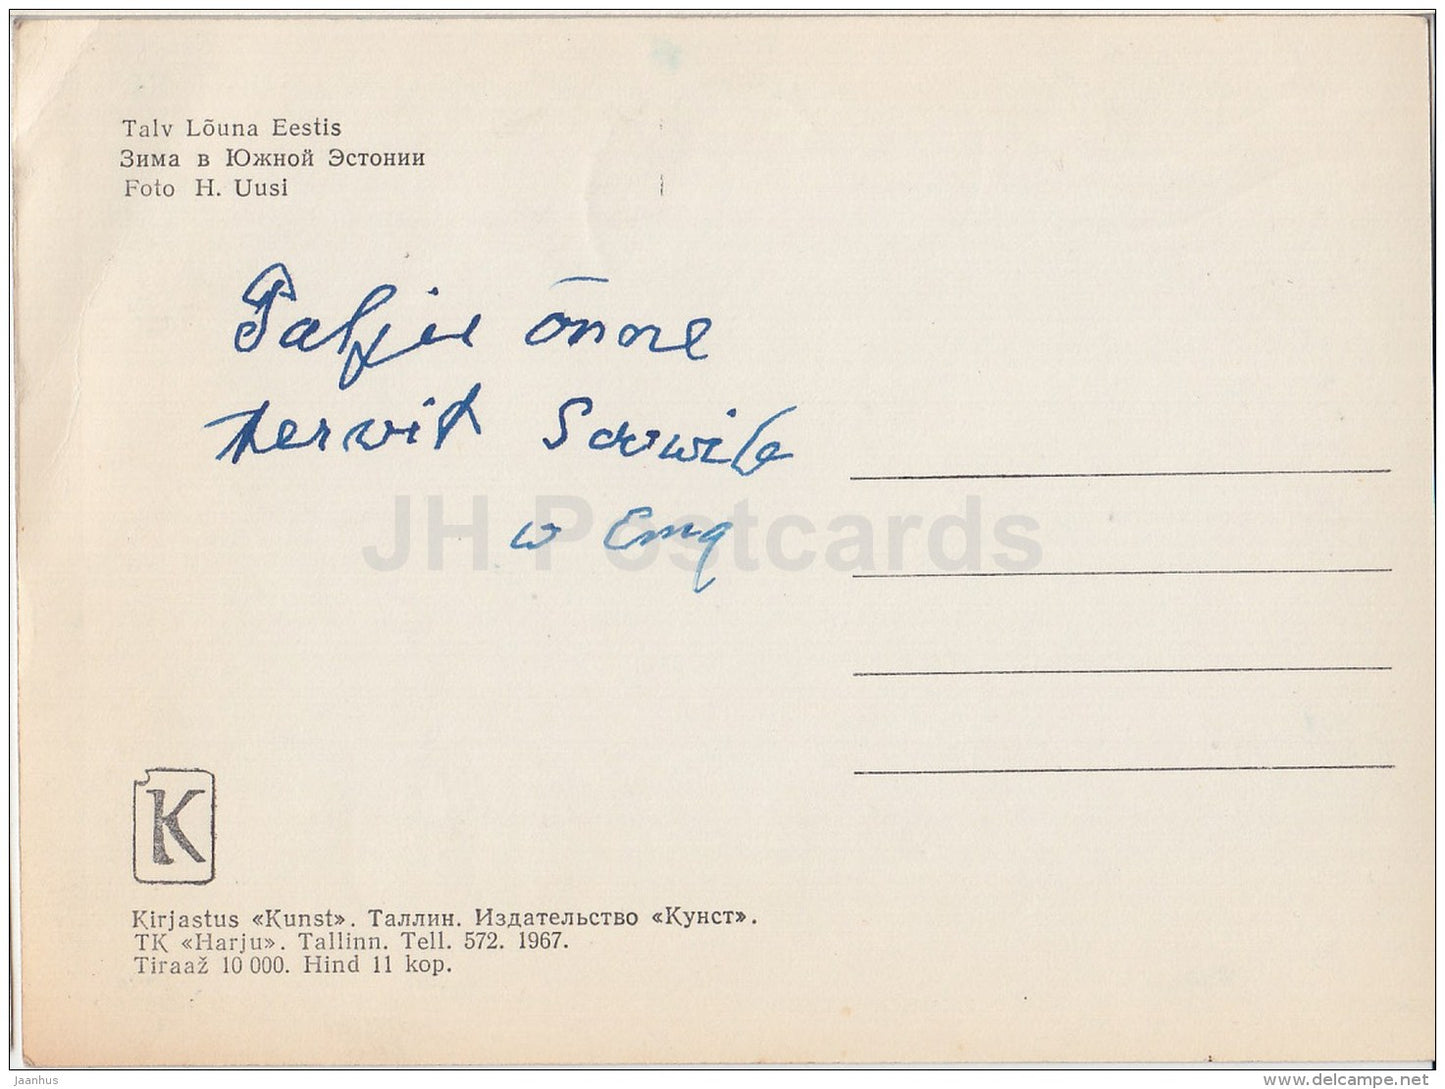 Talv Lõuna Eestis
Зима в Южной Эстонии
Foto H. Uusi
Palju õnne
tervit Soovib
JH Postcards
K
Kirjastus «Kunst». Таллин. Издательство «Кунст».
TK «Harju». Tallinn. Tell. 572. 1967.
Tiraaž 10 000. Hind 11 kop.
jaanhus
www.delcampe.net